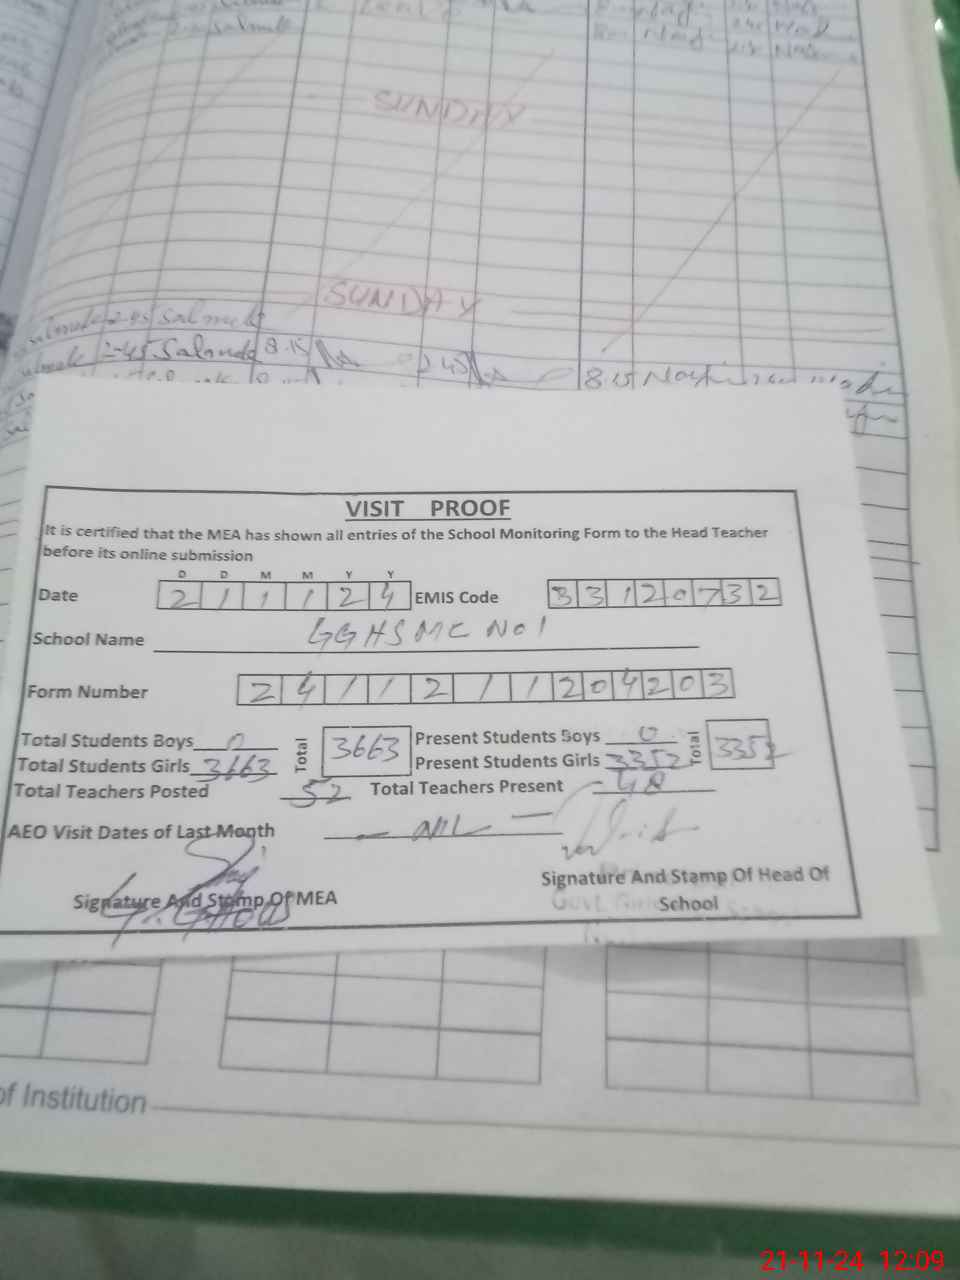 SUNDAY
SUNDAY
2-45 Salmute
2-45 Salmute 8.15 2.45 8.15
VISIT PROOF
It is certified that the MEA has shown all entries of the School Monitoring Form to the Head Teacher
before its online submission
D D M M Y Y
Date 2 1 1 1 2 4 EMIS Code 3 3 1 2 0 7 3 2
School Name GGHS MC No 1
Form Number 2 4 1 1 2 1 1 2 0 4 2 0 3
Total Students Boys 0 Total 3663 Present Students Boys 0 Total 3352
Total Students Girls 3663 Present Students Girls 3352
Total Teachers Posted 52 Total Teachers Present 48
AEO Visit Dates of Last Month — NIL —
Signature And Stamp Of MEA
Signature And Stamp Of Head Of
School
Govt. Girls School
of Institution
21-11-24 12:09